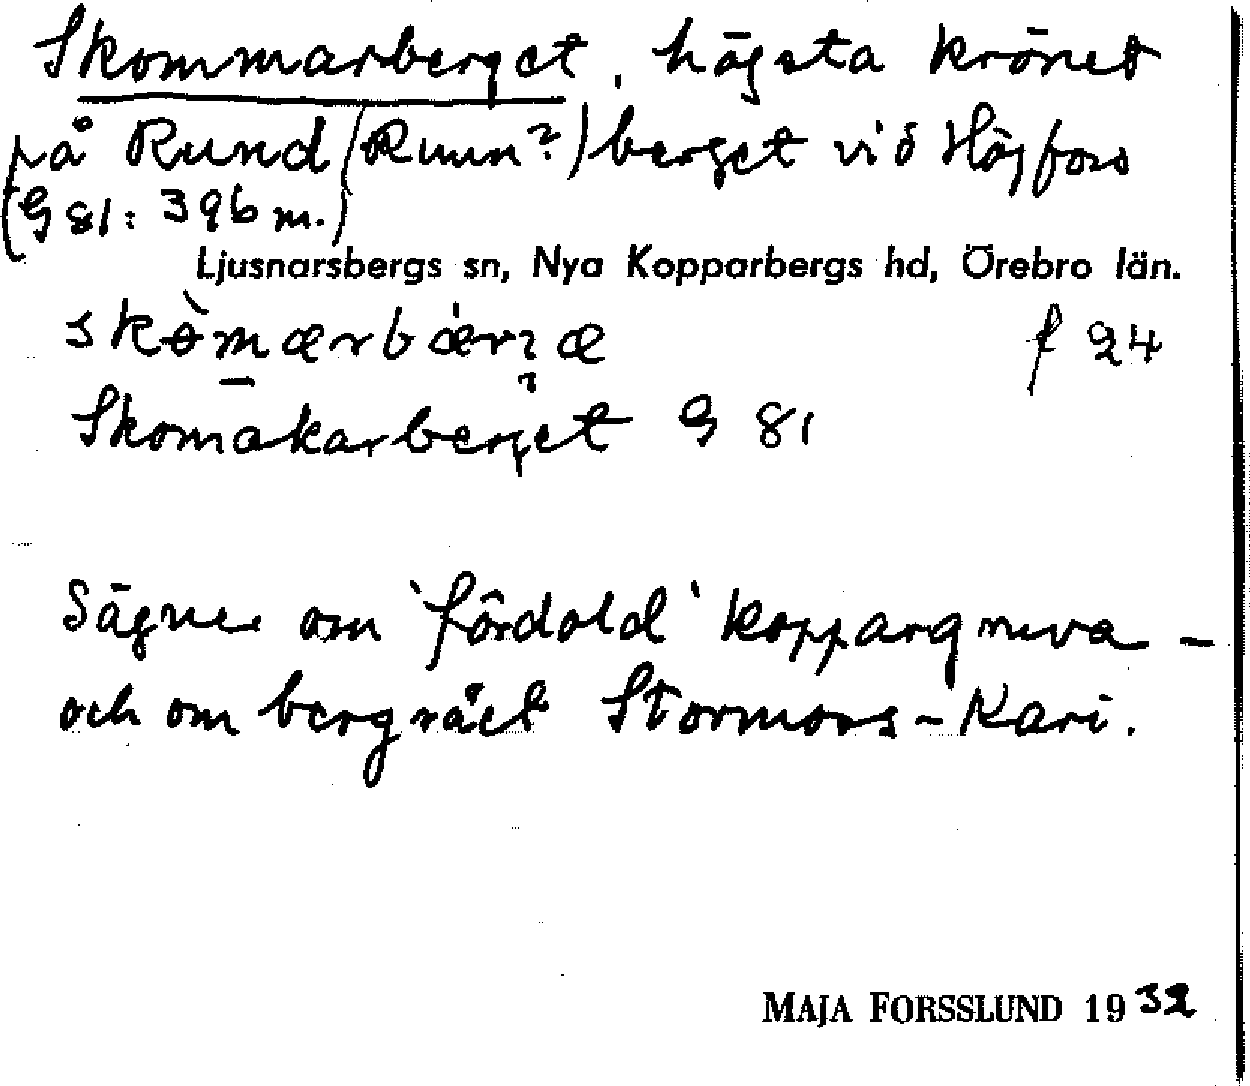 Skommarberget, högsta krönet
på Rund (Ruun?) berget vid Högfors
(G 81: 396 m.)
Ljusnarsbergs sn, Nya Kopparbergs hd, Örebro län.
f 24
Skomakarberget G 81
Sägner om 'fördold' koppargruva -
och om bergrået Stormors-Kari.
MAJA FORSSLUND 1932